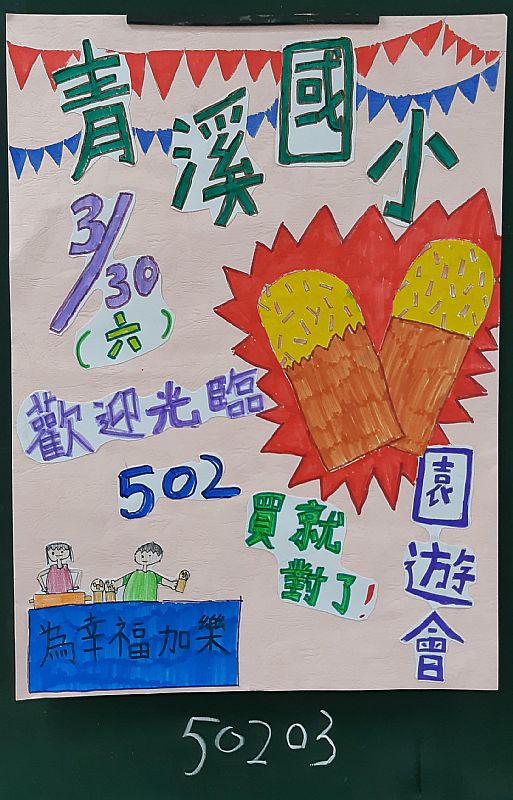 青溪國小
3/30
(六)
歡迎光臨
502
買就
對了!
園遊會
為幸福加樂
50203